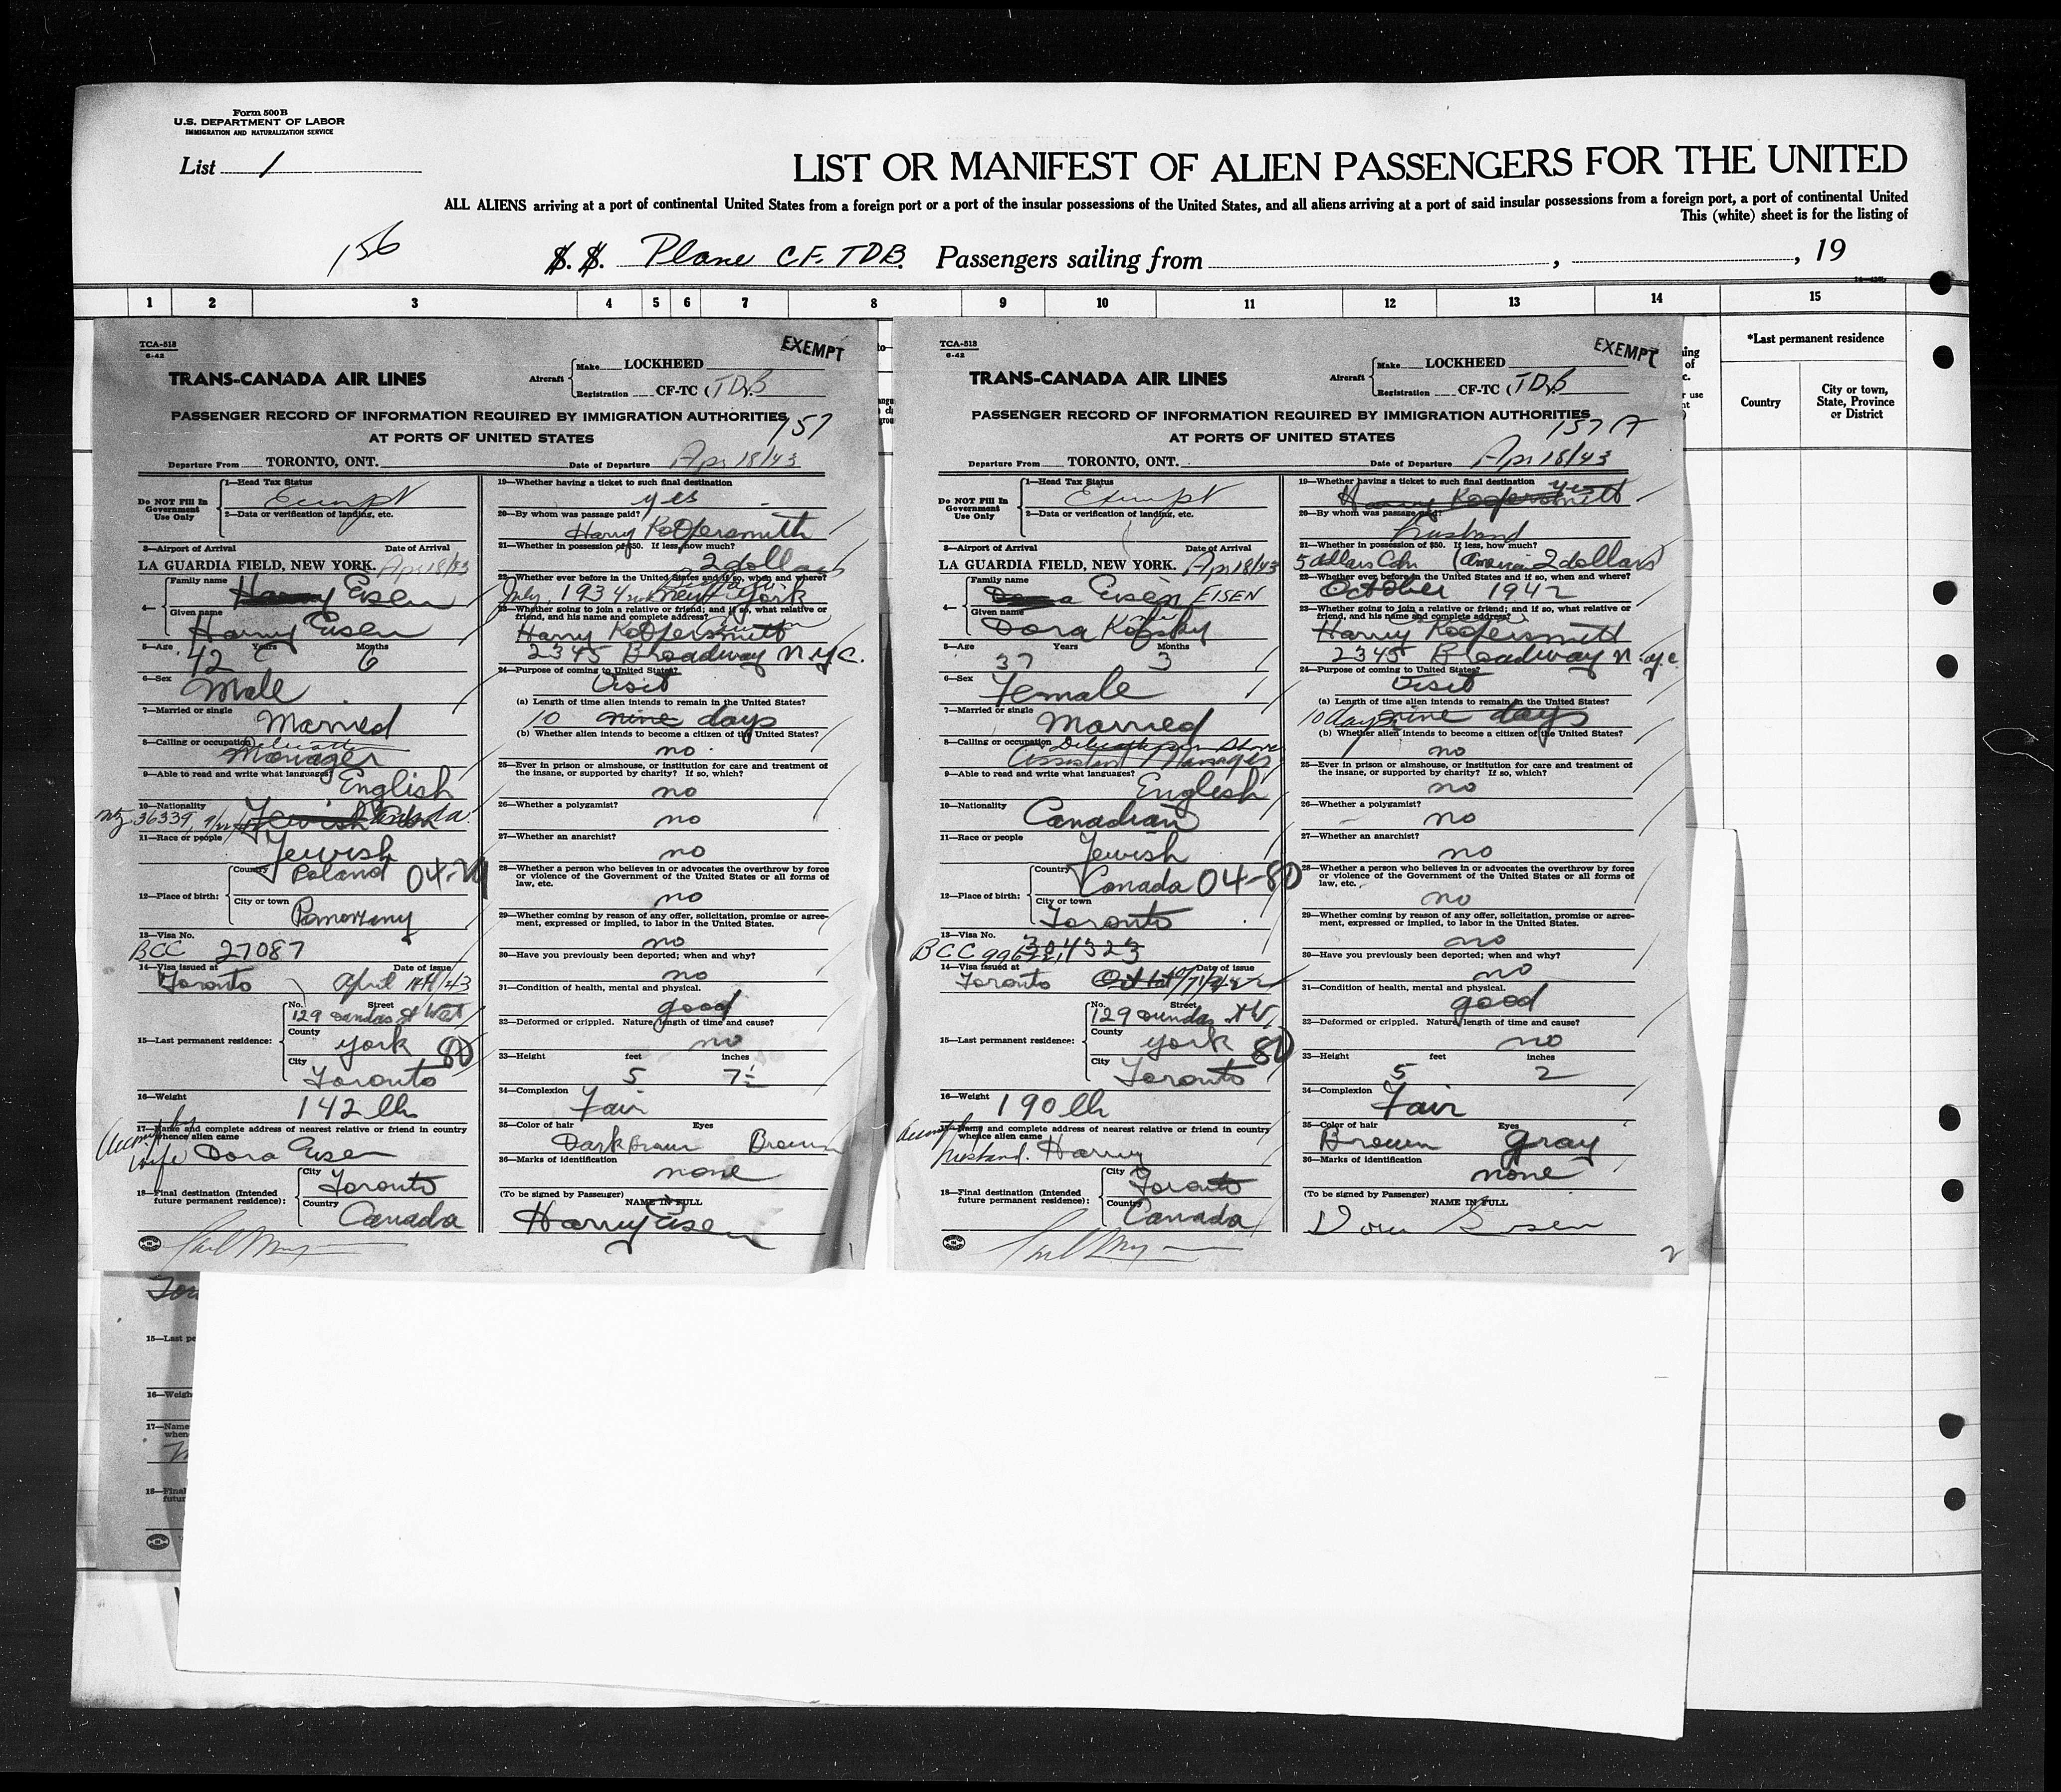 Form 500 B
U.S. DEPARTMENT OF LABOR
IMMIGRATION AND NATURALIZATION SERVICE
List 1
LIST OR MANIFEST OF ALIEN PASSENGERS FOR THE UNITED
ALL ALIENS arriving at a port of continental United States from a foreign port or a port of the insular possessions of the United States, and all aliens arriving at a port of said insular possessions from a foreign port, a port of continental United
This (white) sheet is for the listing of
156
S.S. Plane CF. TDB. Passengers sailing from , , 19
1 2 3 4 5 6 7 8 9 10 11 12 13 14 15
*Last permanent residence
Country
City or town,
State, Province
or District
TCA-518
6-42
EXEMPT
TRANS-CANADA AIR LINES
Aircraft
Make LOCKHEED
Registration CF-TC (TDB)
PASSENGER RECORD OF INFORMATION REQUIRED BY IMMIGRATION AUTHORITIES
AT PORTS OF UNITED STATES
157
Departure From TORONTO, ONT. Date of Departure Apr 18/43
Do NOT Fill In
Government
Use Only
1—Head Tax Status
Exempt
2—Data or verification of landing, etc.
3—Airport of Arrival Date of Arrival
LA GUARDIA FIELD, NEW YORK. Apr 18/43
4—
Family name
Harry Eisen
Given name
Harry Eisen
5—Age Years Months
42 6
6—Sex
Male
7—Married or single
Married
8—Calling or occupation
Manager
9—Able to read and write what languages?
English
10—Nationality
36339, Jewish Canada
11—Race or people
Jewish
12—Place of birth:
Country
Poland 04-
City or town
Pomorzany
13—Visa No.
BCC 27087
14—Visa issued at Date of issue
Toronto April 14/43
15—Last permanent residence:
No. Street
129 Dundas St West
County
York 80
City
Toronto
16—Weight
142 lbs
17—Name and complete address of nearest relative or friend in country
whence alien came
wife Dora Eisen
18—Final destination (Intended
future permanent residence):
City
Toronto
Country
Canada
19—Whether having a ticket to such final destination
yes
20—By whom was passage paid?
Harry Koopersmith
21—Whether in possession of $50. If less, how much?
2 dollars
22—Whether ever before in the United States and if so, when and where?
July, 1934 New York
23—Whether going to join a relative or friend; and if so, what relative or
friend, and his name and complete address?
Harry Koopersmith
2345 Broadway N.Y.C.
24—Purpose of coming to United States?
Visit
(a) Length of time alien intends to remain in the United States?
10 nine days
(b) Whether alien intends to become a citizen of the United States?
no
25—Ever in prison or almshouse, or institution for care and treatment of
the insane, or supported by charity? If so, which?
no
26—Whether a polygamist?
no
27—Whether an anarchist?
no
28—Whether a person who believes in or advocates the overthrow by force
or violence of the Government of the United States or all forms of
law, etc.
no
29—Whether coming by reason of any offer, solicitation, promise or agree-
ment, expressed or implied, to labor in the United States.
no
30—Have you previously been deported; when and why?
no
31—Condition of health, mental and physical.
good
32—Deformed or crippled. Nature, length of time and cause?
no
33—Height feet inches
5 7½
34—Complexion
Fair
35—Color of hair Eyes
Dark brown Brown
36—Marks of identification
none
(To be signed by Passenger) NAME IN FULL
Harry Eisen
1
TCA-518
6-42
EXEMPT
TRANS-CANADA AIR LINES
Aircraft
Make LOCKHEED
Registration CF-TC (TDB)
PASSENGER RECORD OF INFORMATION REQUIRED BY IMMIGRATION AUTHORITIES
AT PORTS OF UNITED STATES
157 A
Departure From TORONTO, ONT. Date of Departure Apr 18/43
Do NOT Fill In
Government
Use Only
1—Head Tax Status
Exempt
2—Data or verification of landing, etc.
3—Airport of Arrival Date of Arrival
LA GUARDIA FIELD, NEW YORK. Apr 18/43
4—
Family name
Dora Eisen EISEN
Given name
Dora
5—Age Years Months
37 3
6—Sex
Female
7—Married or single
Married
8—Calling or occupation
Delicatessen Store
Assistant Manager
9—Able to read and write what languages?
English
10—Nationality
Canadian
11—Race or people
Jewish
12—Place of birth:
Country
Canada 04-80
City or town
Toronto
13—Visa No.
BCC 304323
14—Visa issued at Date of issue
Toronto
15—Last permanent residence:
No. Street
129 Dundas St W
County
York 80
City
Toronto
16—Weight
190 lb
17—Name and complete address of nearest relative or friend in country
whence alien came
husband. Harry
18—Final destination (Intended
future permanent residence):
City
Toronto
Country
Canada
19—Whether having a ticket to such final destination
Harry Koopersmith yes
20—By whom was passage paid?
husband
21—Whether in possession of $50. If less, how much?
5 dollars Cdn (American 2 dollars)
22—Whether ever before in the United States and if so, when and where?
October 1942
23—Whether going to join a relative or friend; and if so, what relative or
friend, and his name and complete address?
Harry Koopersmith
2345 Broadway N.Y.C.
24—Purpose of coming to United States?
Visit
(a) Length of time alien intends to remain in the United States?
10 days nine days
(b) Whether alien intends to become a citizen of the United States?
no
25—Ever in prison or almshouse, or institution for care and treatment of
the insane, or supported by charity? If so, which?
no
26—Whether a polygamist?
no
27—Whether an anarchist?
no
28—Whether a person who believes in or advocates the overthrow by force
or violence of the Government of the United States or all forms of
law, etc.
no
29—Whether coming by reason of any offer, solicitation, promise or agree-
ment, expressed or implied, to labor in the United States.
no
30—Have you previously been deported; when and why?
no
31—Condition of health, mental and physical.
good
32—Deformed or crippled. Nature, length of time and cause?
no
33—Height feet inches
5 2
34—Complexion
Fair
35—Color of hair Eyes
Brown gray
36—Marks of identification
none
(To be signed by Passenger) NAME IN FULL
Dora Eisen
2
15—Last pe
16—Weigh
17—Name
when
18—Final
futur